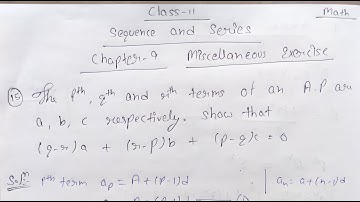 Class-11
Math
Sequence and Series
Chapter-9 Miscellaneous Exercise
15) The pth, qth and rth terms of an A.P are
a, b, c respectively. show that
(q-r)a + (r-p)b + (p-q)c = 0
Sol: pth term ap = A+(p-1)d
an = a+(n-1)d